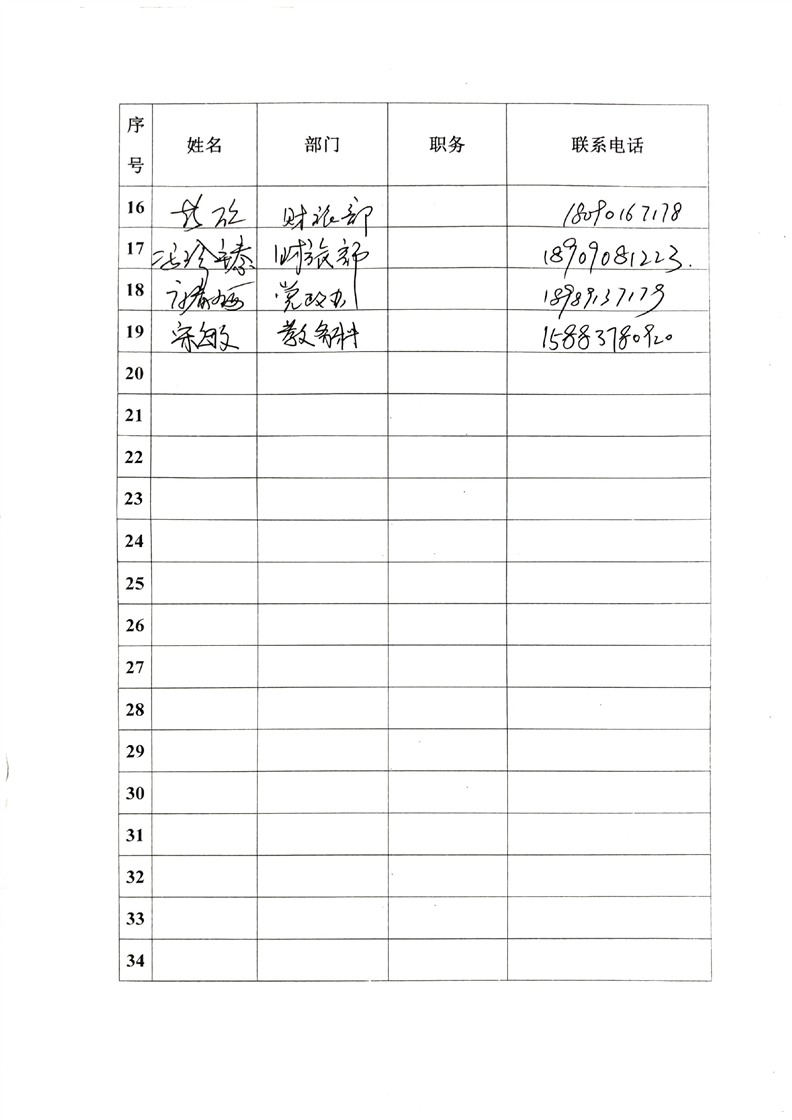 序号 姓名 部门 职务 联系电话
16 财旅部 18090167178
17 财旅部 18909081223.
18 党政办 18989137179
19 宋敏 教务科 15883780920
20
21
22
23
24
25
26
27
28
29
30
31
32
33
34